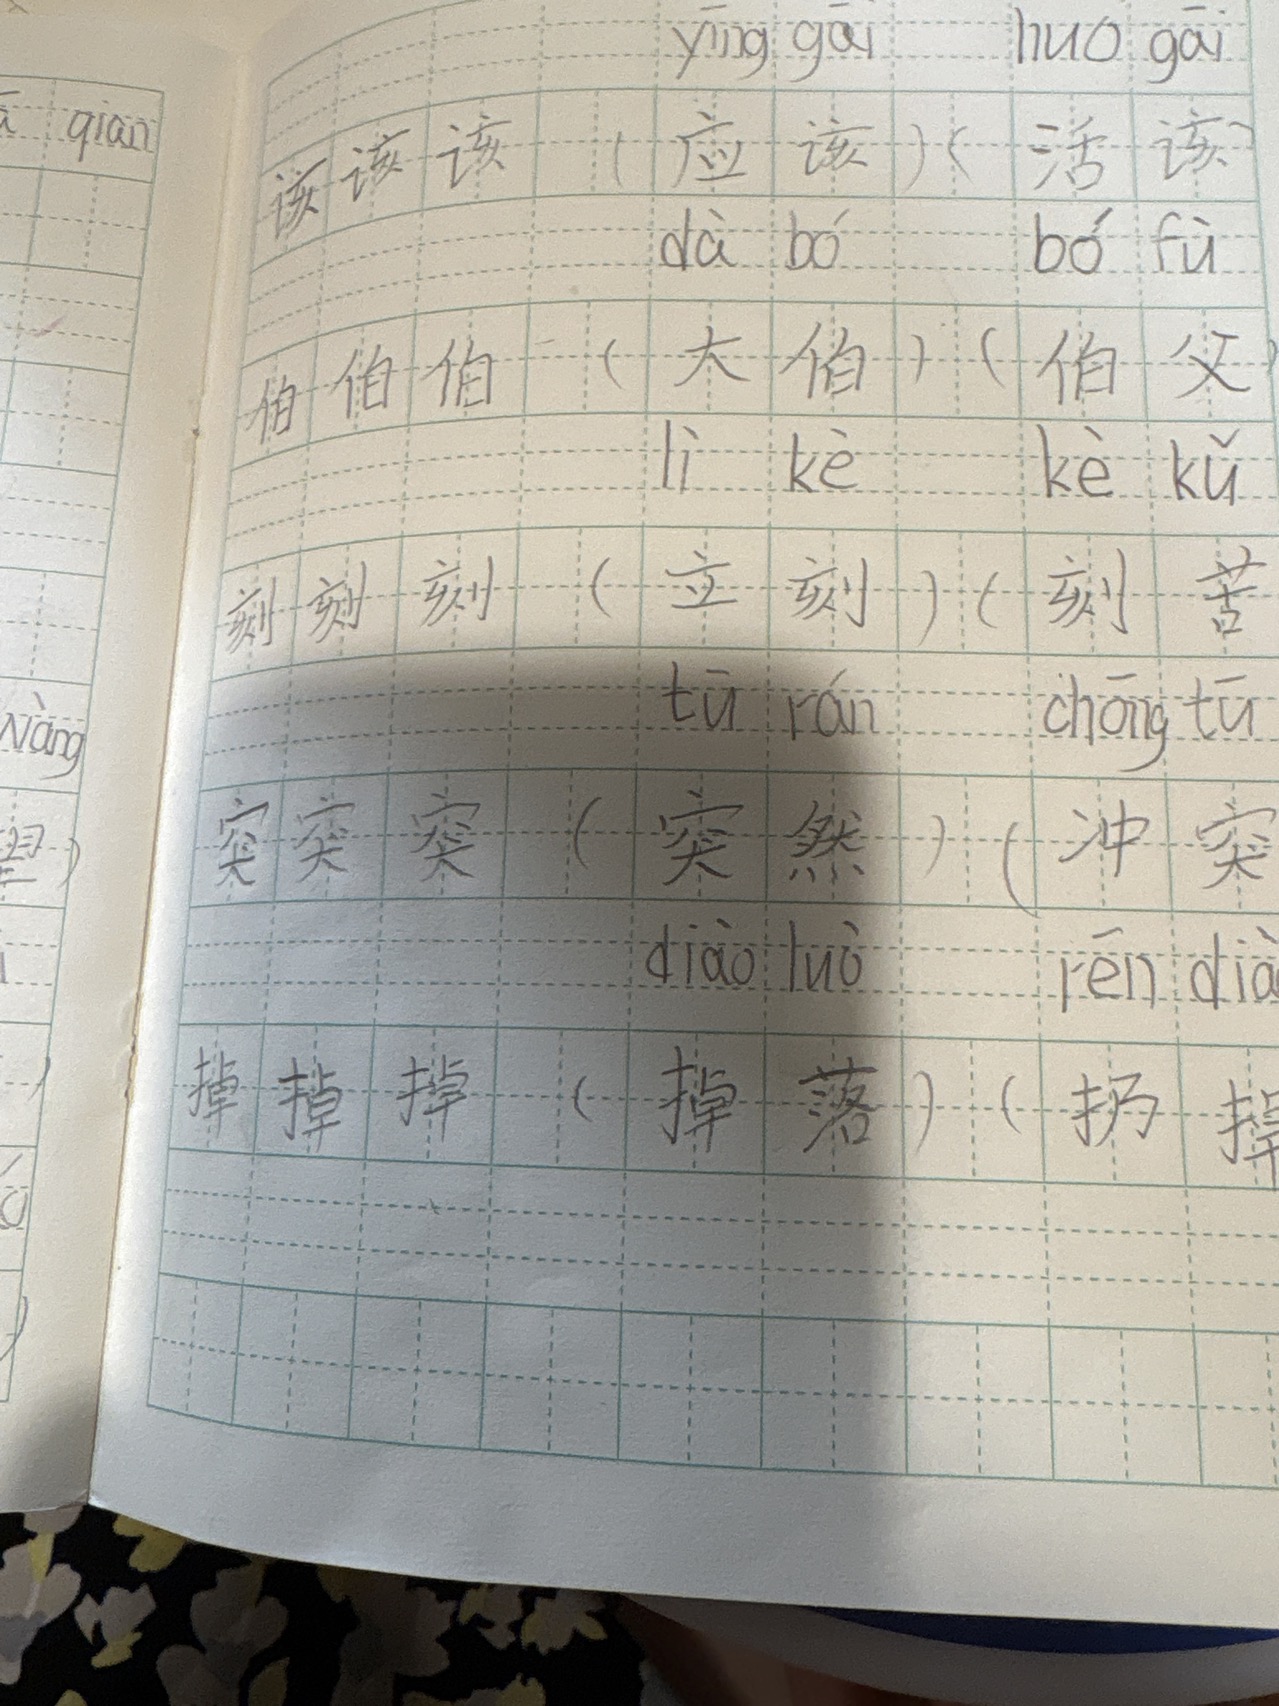 yīng gāi huó gāi
该该该（应该）（活该）
dà bó bó fù
伯伯伯（大伯）（伯父）
lì kè kè kǔ
刻刻刻（立刻）（刻苦
tū rán chōng tū
突突突（突然）（冲突
diào luò rēn dià
掉掉掉（掉落）（扔掉
qián
wàng
望）